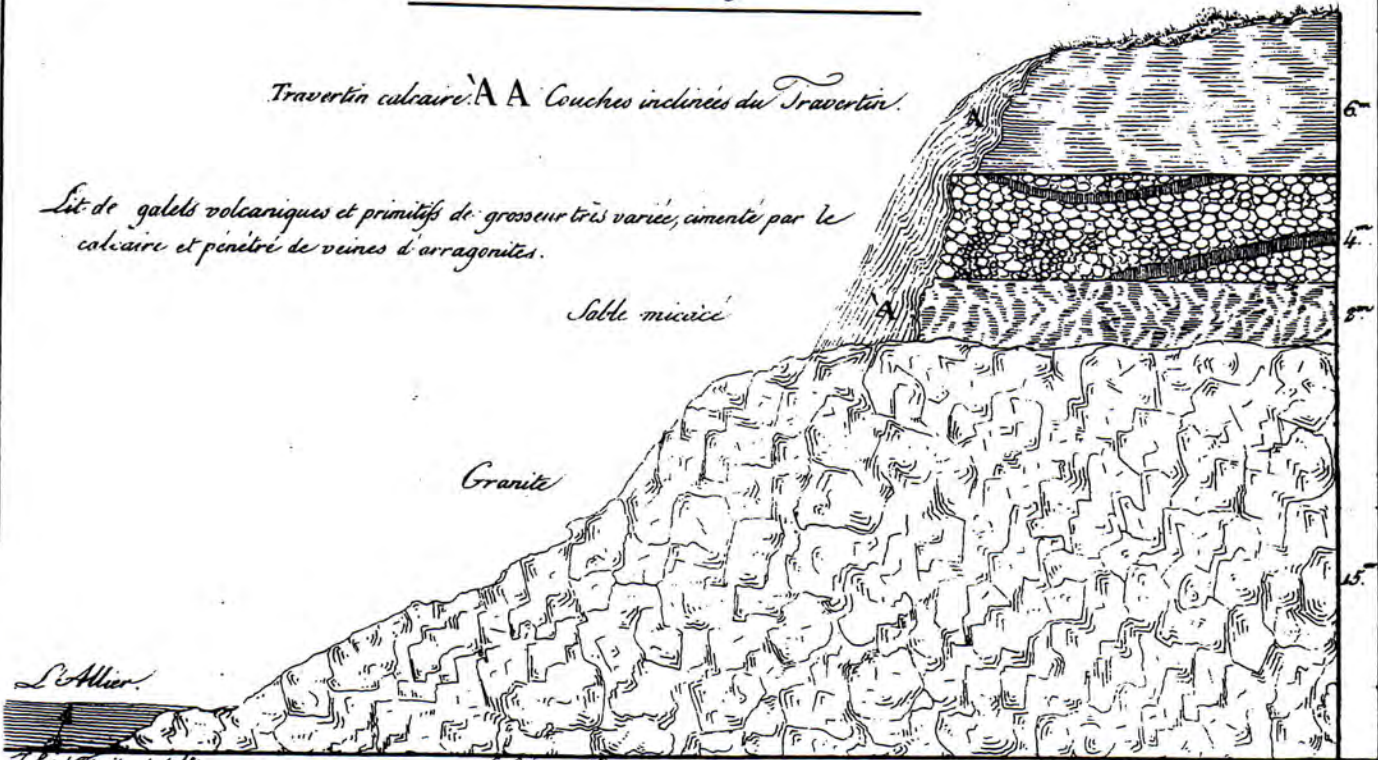 Travertin calcaire. A A Couches inclinées du Travertin.
A
6m
Lit de galets volcaniques et primitifs de grosseur très variée, cimenté par le
calcaire et pénétré de veines d'arragonites.
4m
Sable micacé
A
2m
Granite
15m
L'Allier.